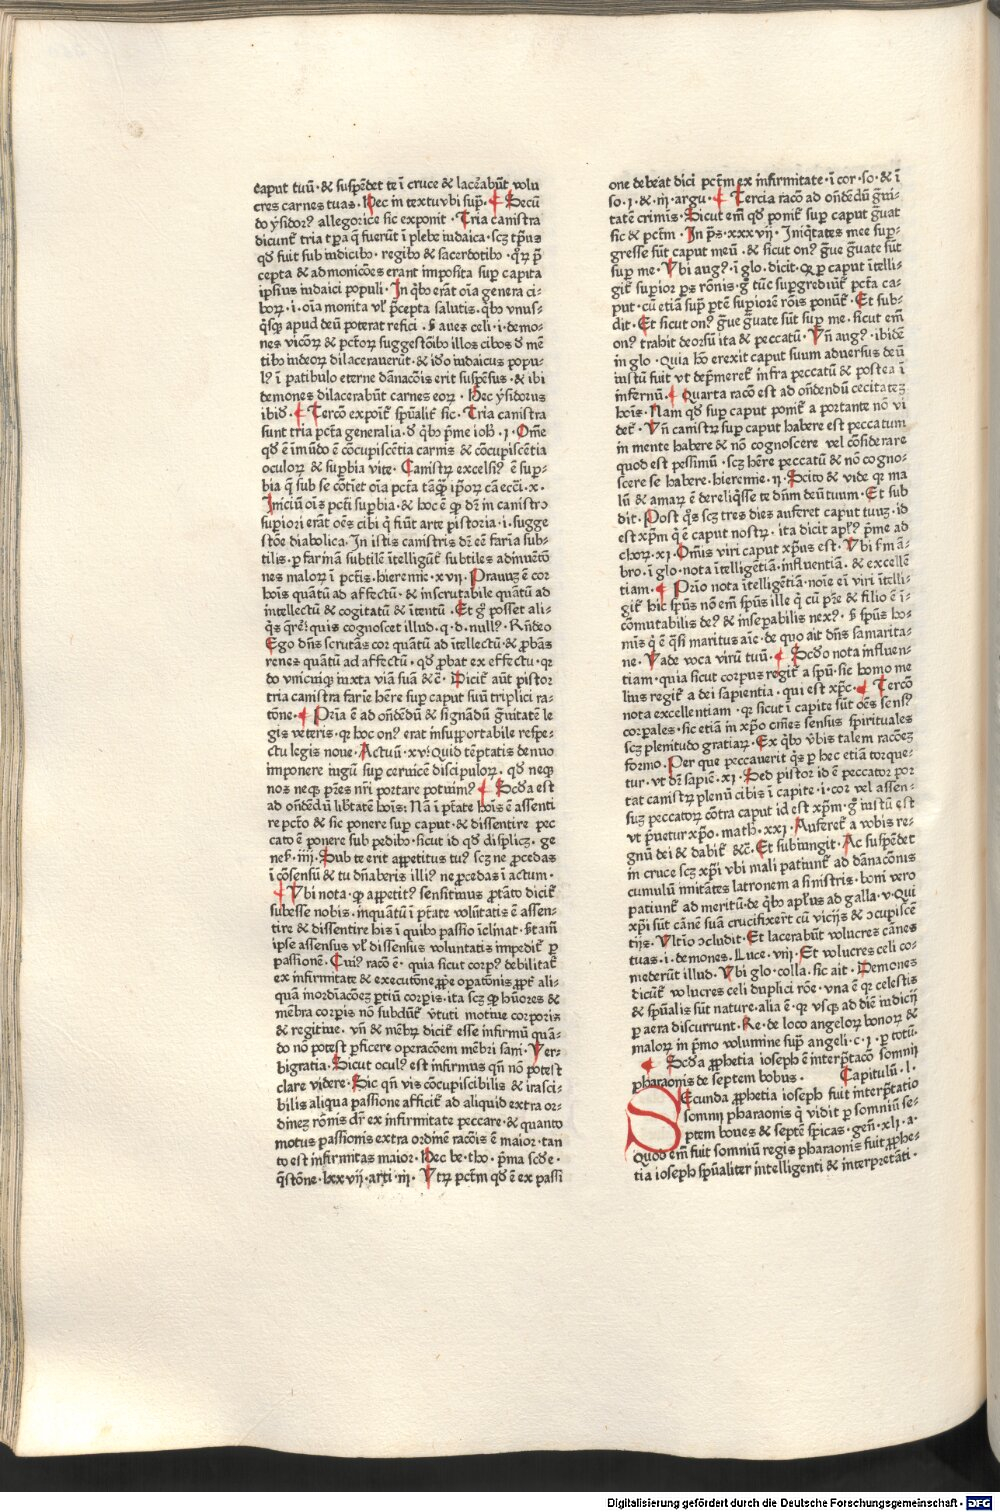 caput tuū · & suspēdet te ī cruce & lacerabūt volu
cres carnes tuas · Hec in textu vbi sup̄ · ¶ Secū
do ysidorꝰ allegorice sic exponit · Tria canistra
dicunt̄ tria tp̄a q̄ fuerūt ī plebe iudaica · scꝫ tp̄us
qd̄ fuit sub iudicibꝰ · regibꝰ & sacerdotibꝰ · qꝛ p̄
cepta & admonicōes erant imposita sup̄ capita
ipsius iudaici populi · In qͥbꝰ erāt oīa genera ci-
boꝝ · i · oīa monita vl̄ p̄cepta salutis · qͥbꝰ vnus-
qͥsqꝫ apud deū poterat refici · s̄ aues celi · i · demo-
nes vicōꝝ & pctōꝝ suggestōibꝰ illos cibos d̄ mē
tibꝰ iudeoꝝ dilacerauerūt · & iđo iudaicus popu-
lꝰ ī patibulo eterne dānacōis erit suspēsus · & ibi
demones dilacerabūt carnes eoꝝ · Hec ysidorus
ibid̄ · ¶ Tercō expoīt̄ spūalit̄ sic · Tria canistra
sunt tria pctā generalia · d̄ qͥbꝰ p̄me ioh̄ · ı · Om̄e
qd̄ ē ī mūdo ē cōcupiscētia carnis & cōcupiscētia
oculoꝝ & supbia vite · Canistꝝ excelsiꝰ ē sup̄-
bia q̄ sub se cōtīet oīa pctā tāqꝫ ip̄oꝝ cā ecc̄i · x ·
Iniciū oīs pcti supbia · & hoc ē qꝫ dr̄ in canistro
supiori erāt oēs cibi qͥ fiūt arte pistoria · i · sugge
stōe diabolica · In istis canistris dr̄ eē farīa sub-
tilis · p farinā subtilē ītelligūt̄ subtiles adinuētō
nes maloꝝ ī pctīs · hieremie · xvıı · Prauuꝫ ē cor
hoīs quātū ad affectū · & inscrutabile quātū ad
intellectū & cogitatū & ītentū · Et gͦ posset ali-
qͥs qͣrēr̄ · quis cognoscet illud · q · d · nullꝰ · Rn̄deo
Ego dn̄s scrutās cor quātū ad ītellectū · & pbās
renes quātū ad affectū · qd̄ pbat ex effectu · qꝛ
do vnicuiqꝫ iuxta viā suā & c̄ · Dicit̄ aūt pistor
tria canistra farīe hēre sup̄ caput suū triplici ra-
tōne · ¶ Pria ē ad on̄dēdū & signādū ḡuitatē le
gis veteris · qꝛ hoc onꝰ erat insupportabile respe-
ctu legis noue · Actuū · xv · Quid tēptatis denuo
imponere iugū sup̄ ceruicē discipuloꝝ · qd̄ neqꝫ
nos neqꝫ p̄res nr̄i portare potuim̄ꝰ · ¶ Scd̄a est
ad on̄dēdū lib̄tatē hoīs : Nā ī p̄tate hoīs ē assenti
re pctō & sic ponere sup̄ caput · & dissentire pec
cato ē ponere sub pedibꝰ · sicut id qd̄ displicꝫ · ge
nes̄ · ıııı · Sub te erit appetitus tuꝰ scꝫ ne procedas
ī cōsensū & tu dn̄aberis illiꝰ ne pcedas ī actum ·
¶ Vbi nota · qꝫ appetitꝰ sensitiuus p̄tāto dicit̄
subesse nobis · inquātū ī p̄tate volūtatis ē assen-
tire & dissentire his ī quibꝰ passio īclinat · s̄ tam̄
ipse assensus vl̄ dissensus voluntatis impedit̄ p
passionē · Cuiꝰ racō ē · quia sicut corpꝰ debilitat̄
ex infirmitate & executōne ppe opatōnis ppt̄ ali-
quā mordinacōeꝫ ptiū corpis · ita scꝫ qꝫ hūores &
mēbra corpis nō subdūt̄ v̄tuti motiue corporis
& regitiue · vn̄ & mēbꝝ dicit̄ esse infirmū quā-
do nō potest pficere opacōem mēbri sani · Ver-
bigratia · Sicut oculꝰ est infirmus qn̄ nō potest
clare videre · Sic qn̄ vis cōcupiscibilis & irasci-
bilis aliqua passione afficit̄ ad aliquid extra or-
dineꝫ rōnis dr̄ ex infirmitate peccare · & quanto
motus passionis extra ordinē racōis ē maior · tan
to est infirmitas maior · Hec be · tho · p̄ma scd̄e ·
q̄stōne · lxxvıı · arti · ııı · Vtꝝ pctm̄ qd̄ ē ex passi
one debeat dici pctm̄ ex infirmitate · ī cor · so · & ī
so · ı · & · ııı · argu · ¶ Tercia racō ad on̄dēdū ḡui-
tatē crimīs · Sicut em̄ qd̄ ponit̄ sup̄ caput ḡuat
sic & pctm̄ · In p̄s · xxxvıı · Iniqͥtates mee sup̄-
gresse sūt caput meū · & sicut onꝰ ḡue ḡuate sūt
sup̄ me · Vbi augꝰ · ī glo · dicit · qꝫ p caput ītelli-
git̄ supior ps rōnis · ḡ tūc supgrediūt̄ pctā ca-
put · cū etiā sup̄ ptē supiorē rōis ponūt̄ · Et sub-
dit · Et sicut onꝰ ḡue ḡuate sūt sup̄ me · sicut em̄
onꝰ trahit deorsū ita & peccatū · Vn̄ augꝰ · ibidē
in glo · Quia hō erexit caput suum aduersus deū
iustū fuit vt dep̄meret̄ infra peccatū & postea ī
infernū · ¶ Quarta racō est ad on̄dendū cecitateꝫ
hoīs · Nam qd̄ sup̄ caput ponit̄ a portante nō vi
det̄ · Vn̄ canistꝝ sup̄ caput habere est peccatum
in mente habere & nō cognoscere vel cōsiderare
quod est pessimū · scꝫ hēre peccatū & nō cogno-
scere se habere · hieremie · ıı · Scito & vide qꝛ ma
lū & amaꝝ ē dereliqͥsse te dn̄m deū tuum · Et sub
dit · Post qͦs scꝫ tres dies auferet caput tuuꝫ · id
est xp̄m qͥ ē caput nostꝝ · ita dicit aplꝰ p̄me ad
choꝝ · xı · Om̄is viri caput xp̄us est · Vbi fm ā-
bro · ī glo · nota ītelligētiā · influentiā · & excellē
tiam · ¶ Prīo nota ītelligētiā · noīe em̄ viri ītelli-
git̄ hic spūs nō em̄ spūs ille qͥ cū pr̄e & filio ē ī-
cōmutabilis deꝰ & īseparabilis nexꝰ · s̄ spūs ho-
mīs qͥ ē qͣsi maritus aīe · de quo ait dn̄s samarita-
ne · Vade voca virū tuū · ¶ Scd̄o nota influen-
tiam · quia sicut corpus regit̄ a spū · sic homo me
lius regit̄ a dei sapientia · qui est xp̄c · ¶ Tercō
nota excellentiam · qꝛ sicut ī capite sūt oēs sensꝰ
corpales · sic etiā in xp̄o om̄es sensus spirituales
scꝫ plenitudo gratiaꝝ · Ex qͥbꝰ v̄bis talem racōeꝫ
formo · Per que peccauerit qͥs p hec etiā torque-
tur · vt dr̄ sapiē · xı · Sed pistor id ē peccator por
tat canistꝝ plenū cibis ī capite · i · cor vel assen-
suꝫ peccatoꝝ cōtra caput id est xp̄m · ḡ iustū est
vt p̄uetur xp̄o · math̄ · xxı · Auferet̄ a vobis re-
gnū dei & dabit̄ &c̄ · Et subiungit · Ac suspēdet
in cruce scꝫ xp̄i vbi mali patiunt̄ ad dānacōnis
cumulū imitātes latronem a sinistris · boni vero
patiunt̄ ad meritū · de qͥbꝰ apl̄us ad galla · v · Qui
xp̄i sūt cānē suā crucifixer̄t cū vicijs & ɔcupiscē
tijs · Vltīo ɔcludit · Et lacerabūt volucres cānes
tuas · i · demones · Luce · vııı · Et volucres celi co-
mederūt illud · Vbi glo · colla · sic ait · Demones
dicūt̄ volucres celi duplici rōe · vna ē qꝛ celestis
& spūalis sūt nature · alia ē · qꝛ vsqꝫ ad diē iudicij
p aera discurrunt · Re · de loco angeloꝝ bonoꝝ &
maloꝝ in p̄mo volumine sup̄ angeli · c · ı · p totū ·
¶ Scd̄a pphetia ioseph ē interp̄tacō somnij
pharaonis de septem bobus · Capitulū · l ·
SEcunda pphetia ioseph fuit interp̄tatio
somnij pharaonis qͥ vidit p somniū se-
ptem boues & septē spicas · gen̄ · xlı · a ·
Quod em̄ fuit somniū regis pharaonis fuit pphe-
tia ioseph spūaliter intelligenti & interpretāti ·
Digitalisierung gefördert durch die Deutsche Forschungsgemeinschaft - DFG